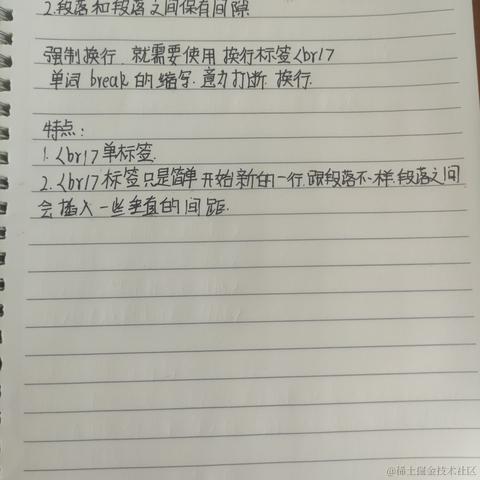 2.段落和段落之间保有间隙
强制换行,就需要使用换行标签<br/>
单词 break 的缩写.意为打断 换行.
特点:
1.<br/>单标签.
2.<br/>标签只是简单开始新的一行.跟段落不一样.段落之间
会插入一些垂直的间距.
@稀土掘金技术社区